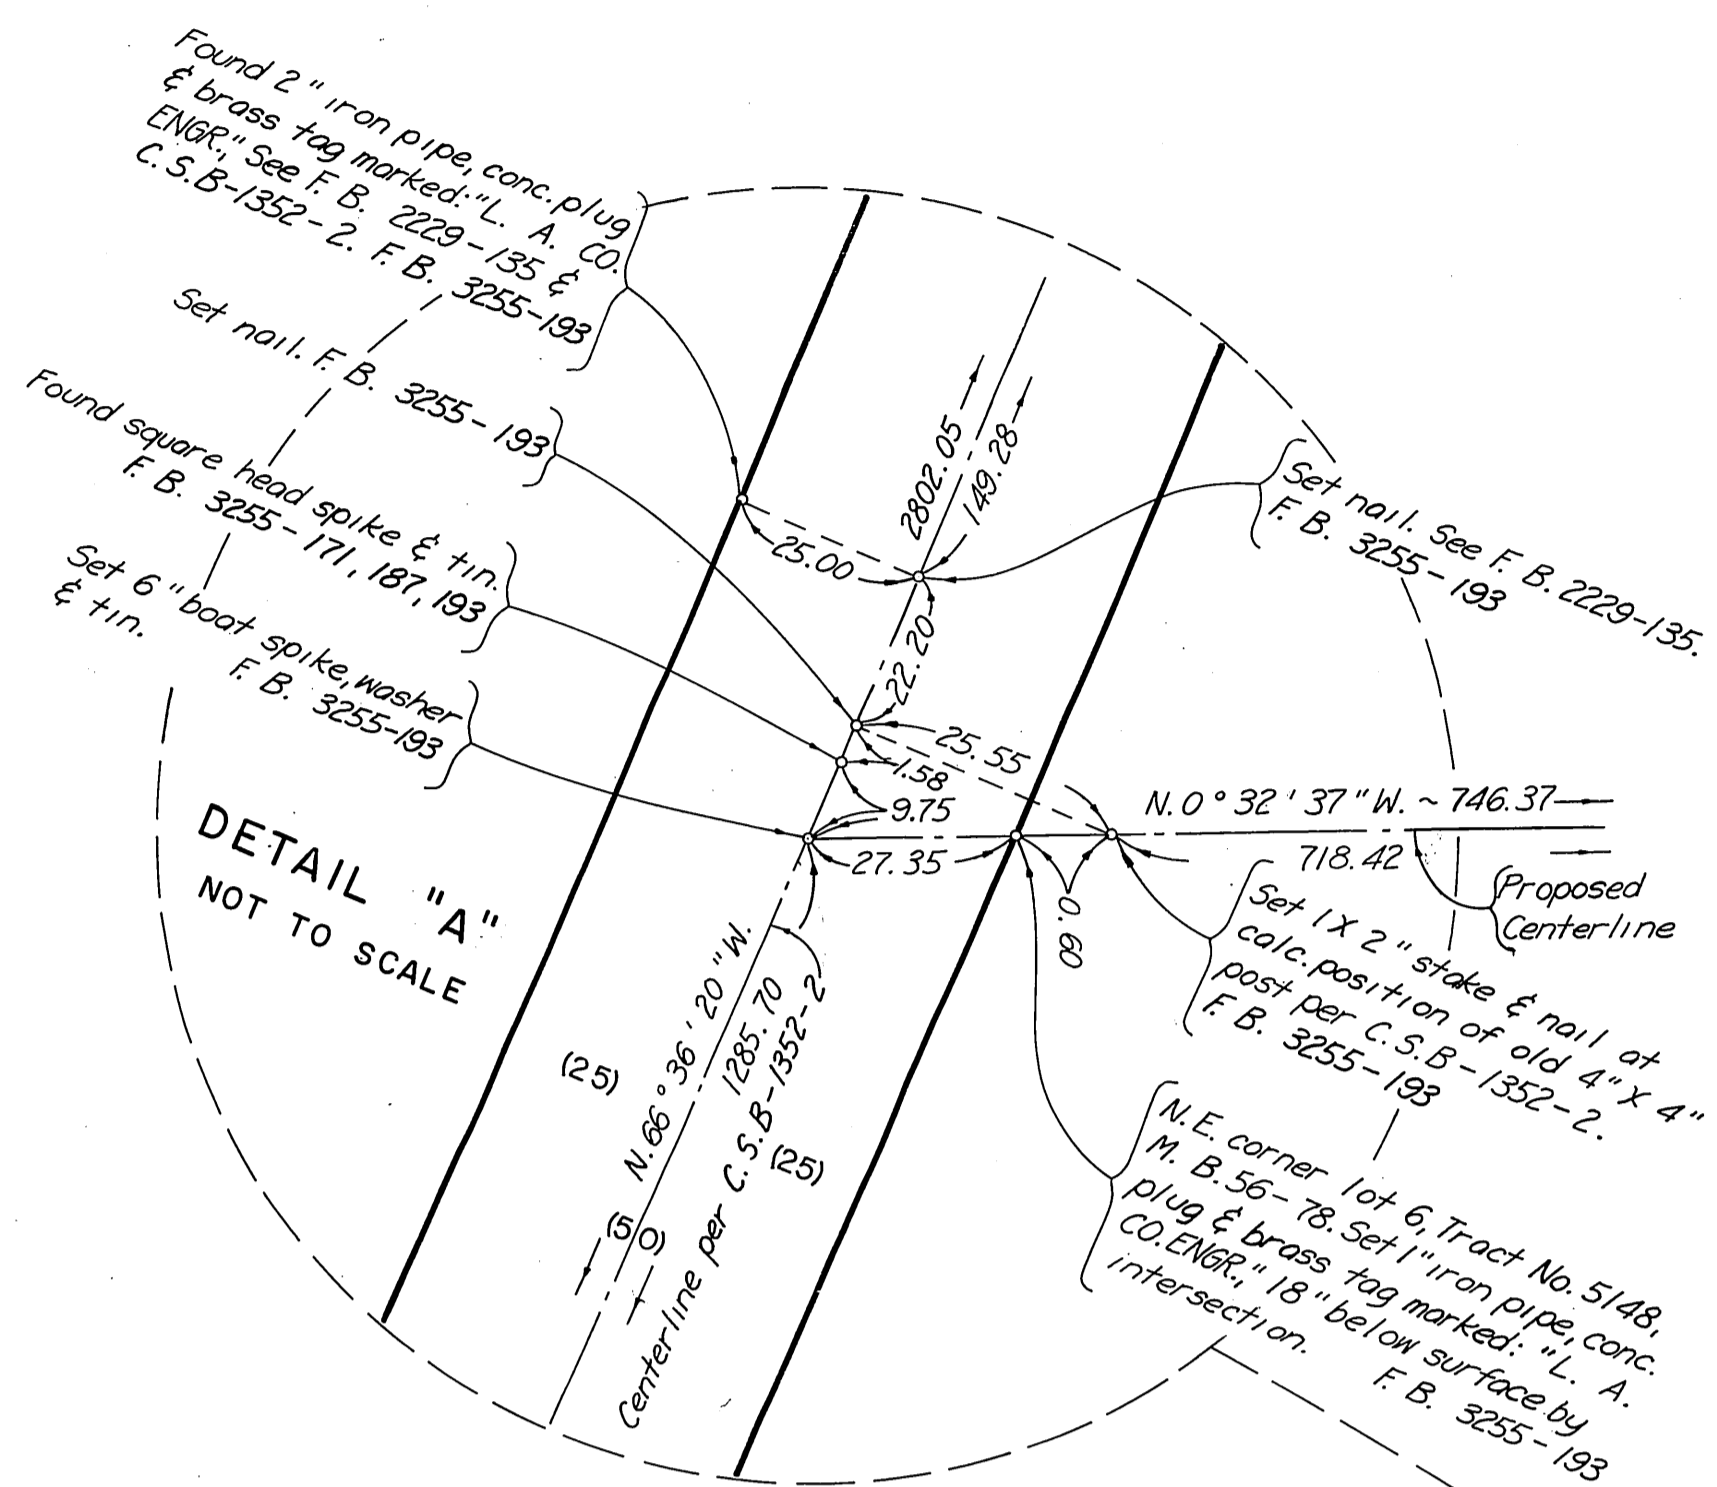 Found 2" iron pipe, conc. plug
& brass tag marked: "L. A. CO.
ENGR.," See F. B. 2229-135 &
C.S.B-1352-2. F. B. 3255-193
Set nail. F. B. 3255-193
Found square head spike & tin.
F. B. 3255-171, 187, 193
Set 6" boat spike, washer
& tin. F. B. 3255-193
DETAIL "A"
NOT TO SCALE
2802.05
149.28
25.00
22.20
25.55
1.58
9.75
27.35
0.60
Set nail. See F. B. 2229-135.
F. B. 3255-193
N. 0° 32' 37" W. ~ 746.37
718.42
Proposed
Centerline
Set 1 X 2" stake & nail at
calc. position of old 4" X 4"
post per C.S.B-1352-2.
F. B. 3255-193
N.E. corner lot 6, Tract No. 5148,
M. B. 56-78. Set 1" iron pipe, conc.
plug & brass tag marked: "L. A.
CO. ENGR.," 18" below surface by
intersection. F. B. 3255-193
N. 66° 36' 20" W.
1285.70
Centerline per C.S.B-1352-2
(25)
(25)
(50)